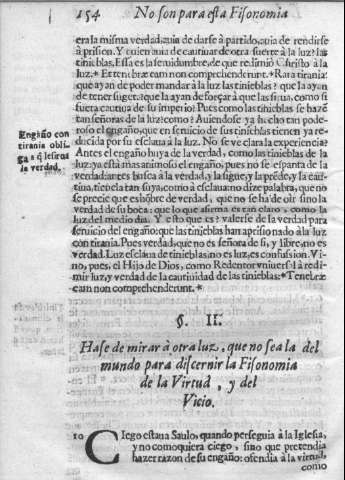 154 No son para esta Fisonomia
era la misma verdad, auia de darse à partido, auia de rendirse
à prision. Y quien auia de cautiuar de otra suerte à la luz? las
tinieblas. Essa es la seruidumbre, de que redimió Christo à la
luz. * Et tenebræ eam non comprehenderunt. * Rara tirania!
que ayan de poder mandar à la luz las tinieblas? que la ayan
de tener sugeta? que la ayan de forçar à que las sirua, como si
fuera cautiua de su imperio? Pues como las tinieblas se hazẽ
tan señoras de la luz? como? Auiendose ya hecho tan pode-
roso el engaño, que en seruicio de sus tinieblas tienen ya re-
ducida por su esclaua à la luz. No se ve clara la experiencia?
Antes el engaño huya de la verdad, como las tinieblas de la
luz: ya està mas animoso el engaño, pues no se esparta de la
verdad: antes busca à la verdad, y la sigue, y la prẽde, y la cau-
tiua, tienela tan suya, como à esclaua: no dize palabra, que no
se precie que es hõbre de verdad, que no se ha de oir sino la
verdad de su boca: que lo que afirma es tan claro, como la
luz del medio dia. Y esto que es? valerse de la verdad para
seruicio del engaño: que las tinieblas han aprisionado à la luz
con tirania. Pues verdad, que no es señora de si, y libre, no es
verdad. Luz esclaua de tinieblas, no es luz, es confusion. Vi-
no, pues, el Hijo de Dios, como Redentor vniuersal à redi-
mir luz, y verdad de la cautiuidad de las tinieblas: * Tenebræ
eam non comprehenderunt. *
Engaño con
tirania obli-
ga a q̃ le sirua
la verdad.
§. II.
Hase de mirar à otra luz, que no sea la del
mundo para discernir la Fisonomia
de la Virtud, y del
Vicio.
10 Ciego estaua Saulo, quando perseguia à la Iglesia,
y no como quiera ciego, sino que pretendia
hazer razon de su engaño: ofendia à la virtud,
como